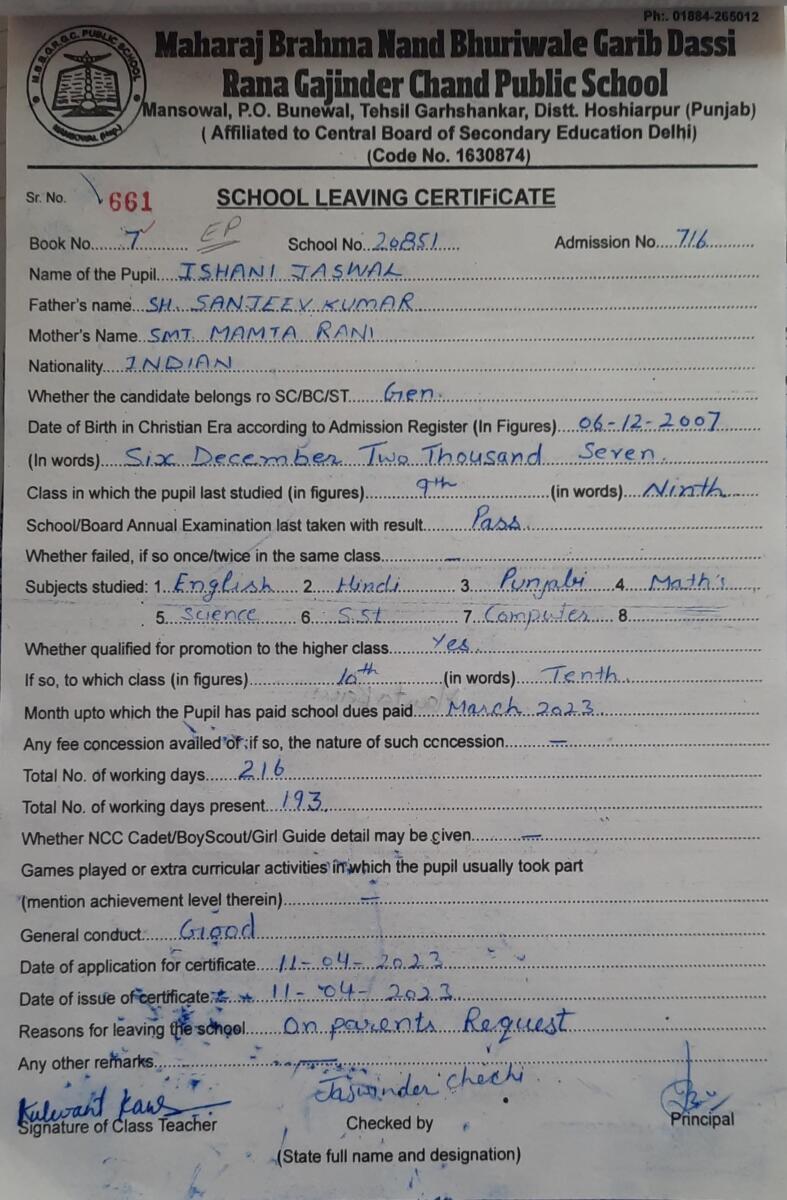 Ph:. 01884-265012
M.B.B.G.R.G.C. PUBLIC SCHOOL
MANSOWAL (Hsp.)
Maharaj Brahma Nand Bhuriwale Garib Dassi
Rana Gajinder Chand Public School
Mansowal, P.O. Bunewal, Tehsil Garhshankar, Distt. Hoshiarpur (Punjab)
( Affiliated to Central Board of Secondary Education Delhi)
(Code No. 1630874)
Sr. No. 661 SCHOOL LEAVING CERTIFiCATE
Book No. 7 EP School No. 20851 Admission No. 716
Name of the Pupil ISHANI JASWAL
Father's name SH. SANJEEV KUMAR
Mother's Name SMT. MAMTA RANI
Nationality INDIAN
Whether the candidate belongs ro SC/BC/ST Gen.
Date of Birth in Christian Era according to Admission Register (In Figures) 06-12-2007
(In words) Six December Two Thousand Seven.
Class in which the pupil last studied (in figures) 9th (in words) Ninth
School/Board Annual Examination last taken with result Pass
Whether failed, if so once/twice in the same class —
Subjects studied: 1. English 2. Hindi 3. Punjabi 4. Math's
5. Science 6. S.St 7. Computer 8.
Whether qualified for promotion to the higher class Yes
If so, to which class (in figures) 10th (in words) Tenth
Month upto which the Pupil has paid school dues paid March 2023
Any fee concession availed of : if so, the nature of such concession —
Total No. of working days 216
Total No. of working days present 193
Whether NCC Cadet/BoyScout/Girl Guide detail may be given —
Games played or extra curricular activities in which the pupil usually took part
(mention achievement level therein) —
General conduct Good
Date of application for certificate 11-04-2023
Date of issue of certificate 11-04-2023
Reasons for leaving the school On parents Request
Any other remarks —
Kulwant Kaur Jaswinder Chechi
Signature of Class Teacher Checked by Principal
(State full name and designation)